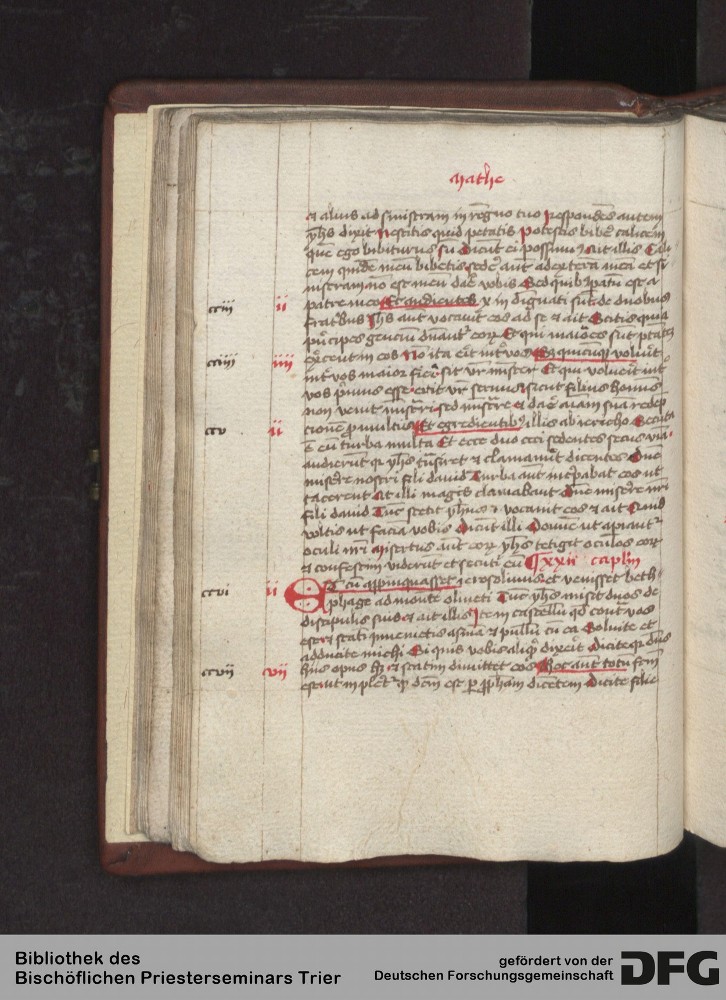 Mathe
et alius ad sinistram in regno tuo respondens autem
yhs dixit nescitis quid petatis potestis bibe calicem
que ego bibiturus su dicut ei possimus ait illis Cali
cem quide meu bibetis sede aut ad extera mea et si
nistram no est meu dare vobis Sed quibus patu est a
cciii ii patre meo Et audientes x indignati sut de duobus
fratribus yhs aut vocavit eos ad se et ait Scitis quia
pncipes gencium dnant eor Et qui maiores sut ptate
cciiii iiii exercent in eos No ita erit int vos Sed quicuq voluerit
int vos maior fieri sit vr mister Et qui voluerit int
vos primus esse erit vr servus sicut filius hominis
non venit mistrari sed mistrare et dare aiam sua redep
ccv ii cione p multis Et egredientibus illis ab iericho Secuta
e eu turba multa Et ecce duo ceci sedentes secus via
audierunt qr yhs tnsiret et clamaverut dicentes Dne
miserere nostri fili david Turba aut increpabat eos ut
tacerent At illi magis clamabant Dne miserere nri
fili david Tuc stetit yhus et vocavit eos et ait Quid
voltis ut facia vobis Dicut illi Domine ut apiantur
oculi nri Misertus aut eor yhs tetigit oculos eor
et confestim viderut et secuti eu xxii caplm
ccvi ii Et cu appinquasset ierosolimis et venisset beth
phage ad monte oliveti Tuc yhus misit duos de
discipulis suis et ait illis Item castellu qd contra vos
est et stati invenietis asina et pullu cu ea Solvite et
adducite michi Si quis vobis aliqd dixerit dicite qr dns
ccvii vii hiis opus hz et statim dimittet eos Hoc aut totu fcm
est ut impletur qd dcm est per pphetam dicentem dicite filie
Bibliothek des
Bischöflichen Priesterseminars Trier
gefördert von der
Deutschen Forschungsgemeinschaft DFG